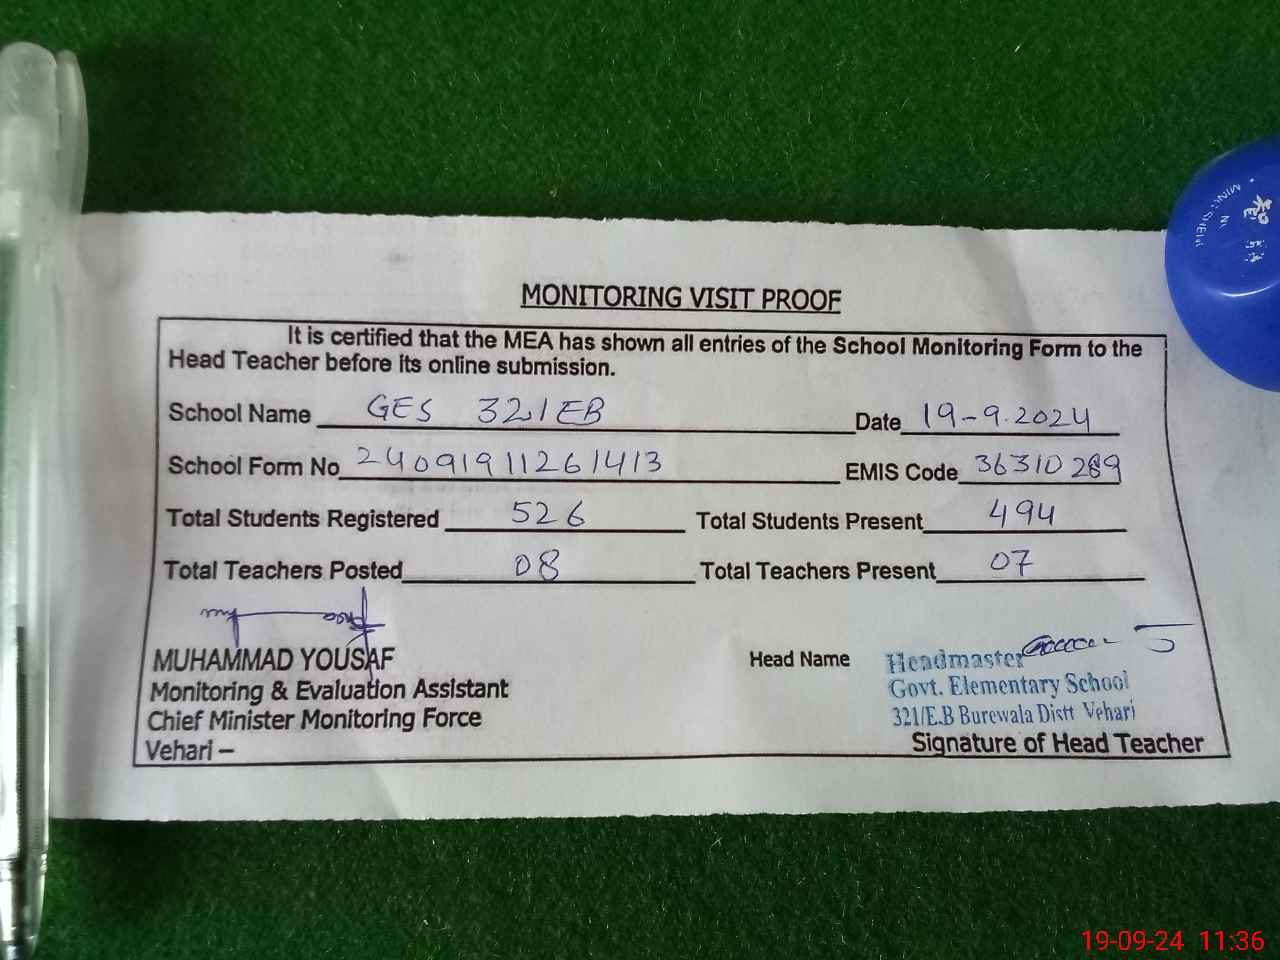 MONITORING VISIT PROOF
It is certified that the MEA has shown all entries of the School Monitoring Form to the
Head Teacher before its online submission.
School Name GES 321EB Date 19-9.2024
School Form No 24091911261413 EMIS Code 36310289
Total Students Registered 526 Total Students Present 494
Total Teachers Posted 08 Total Teachers Present 07
MUHAMMAD YOUSAF
Monitoring & Evaluation Assistant
Chief Minister Monitoring Force
Vehari –
Head Name
Headmaster
Govt. Elementary School
321/E.B Burewala Distt Vehari
Signature of Head Teacher
19-09-24 11:36